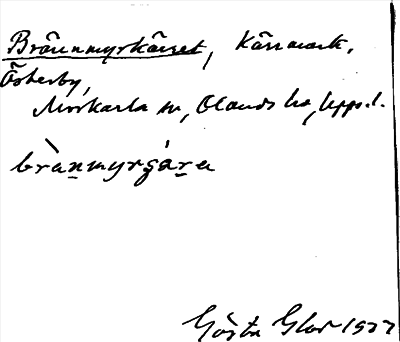 Brännmyrkärret, Kärrmark,
Österby,
Morkarla sn, Olands hd, Upps. l.
brànmyrgára
Gösta Glas 1937